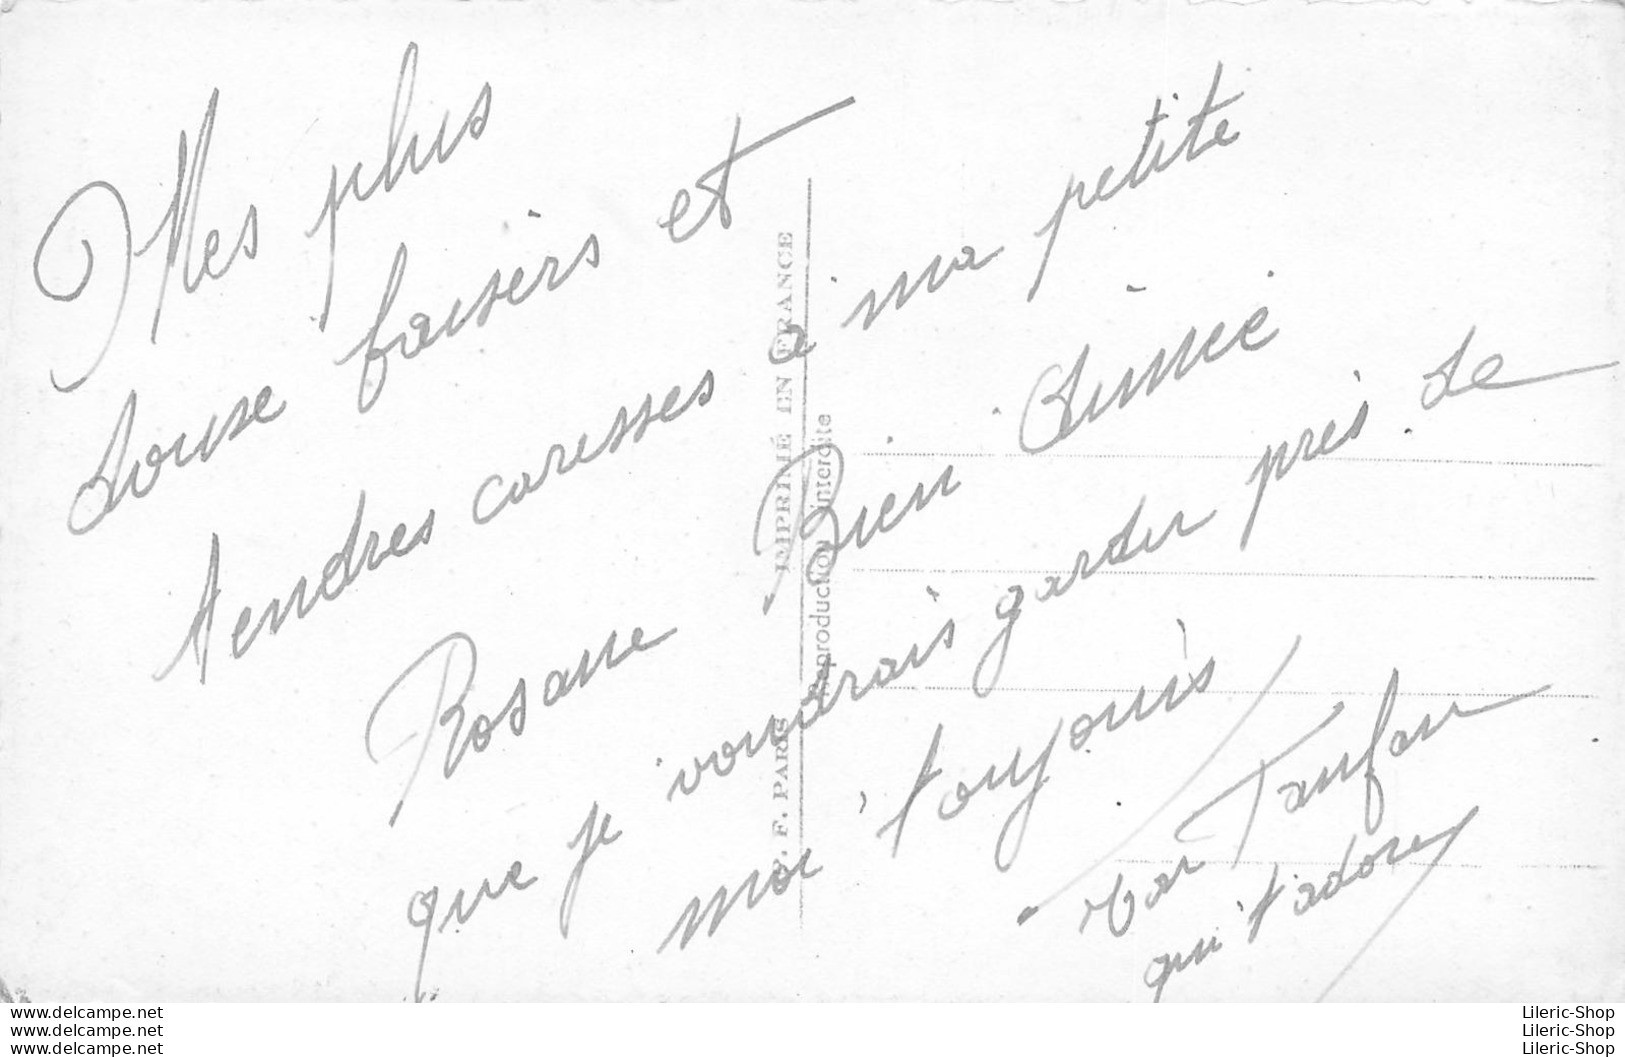 Mes plus
douse baisers et
tendres caresses à ma petite
Rosane Bien Aimée
que je voudrais garder près de
moi toujours
Ton
qui t'adore
IMPRIMÉ EN FRANCE
Reproduction interdite
F. PARIS
www.delcampe.net
www.delcampe.net
www.delcampe.net
Lileric-Shop
Lileric-Shop
Lileric-Shop